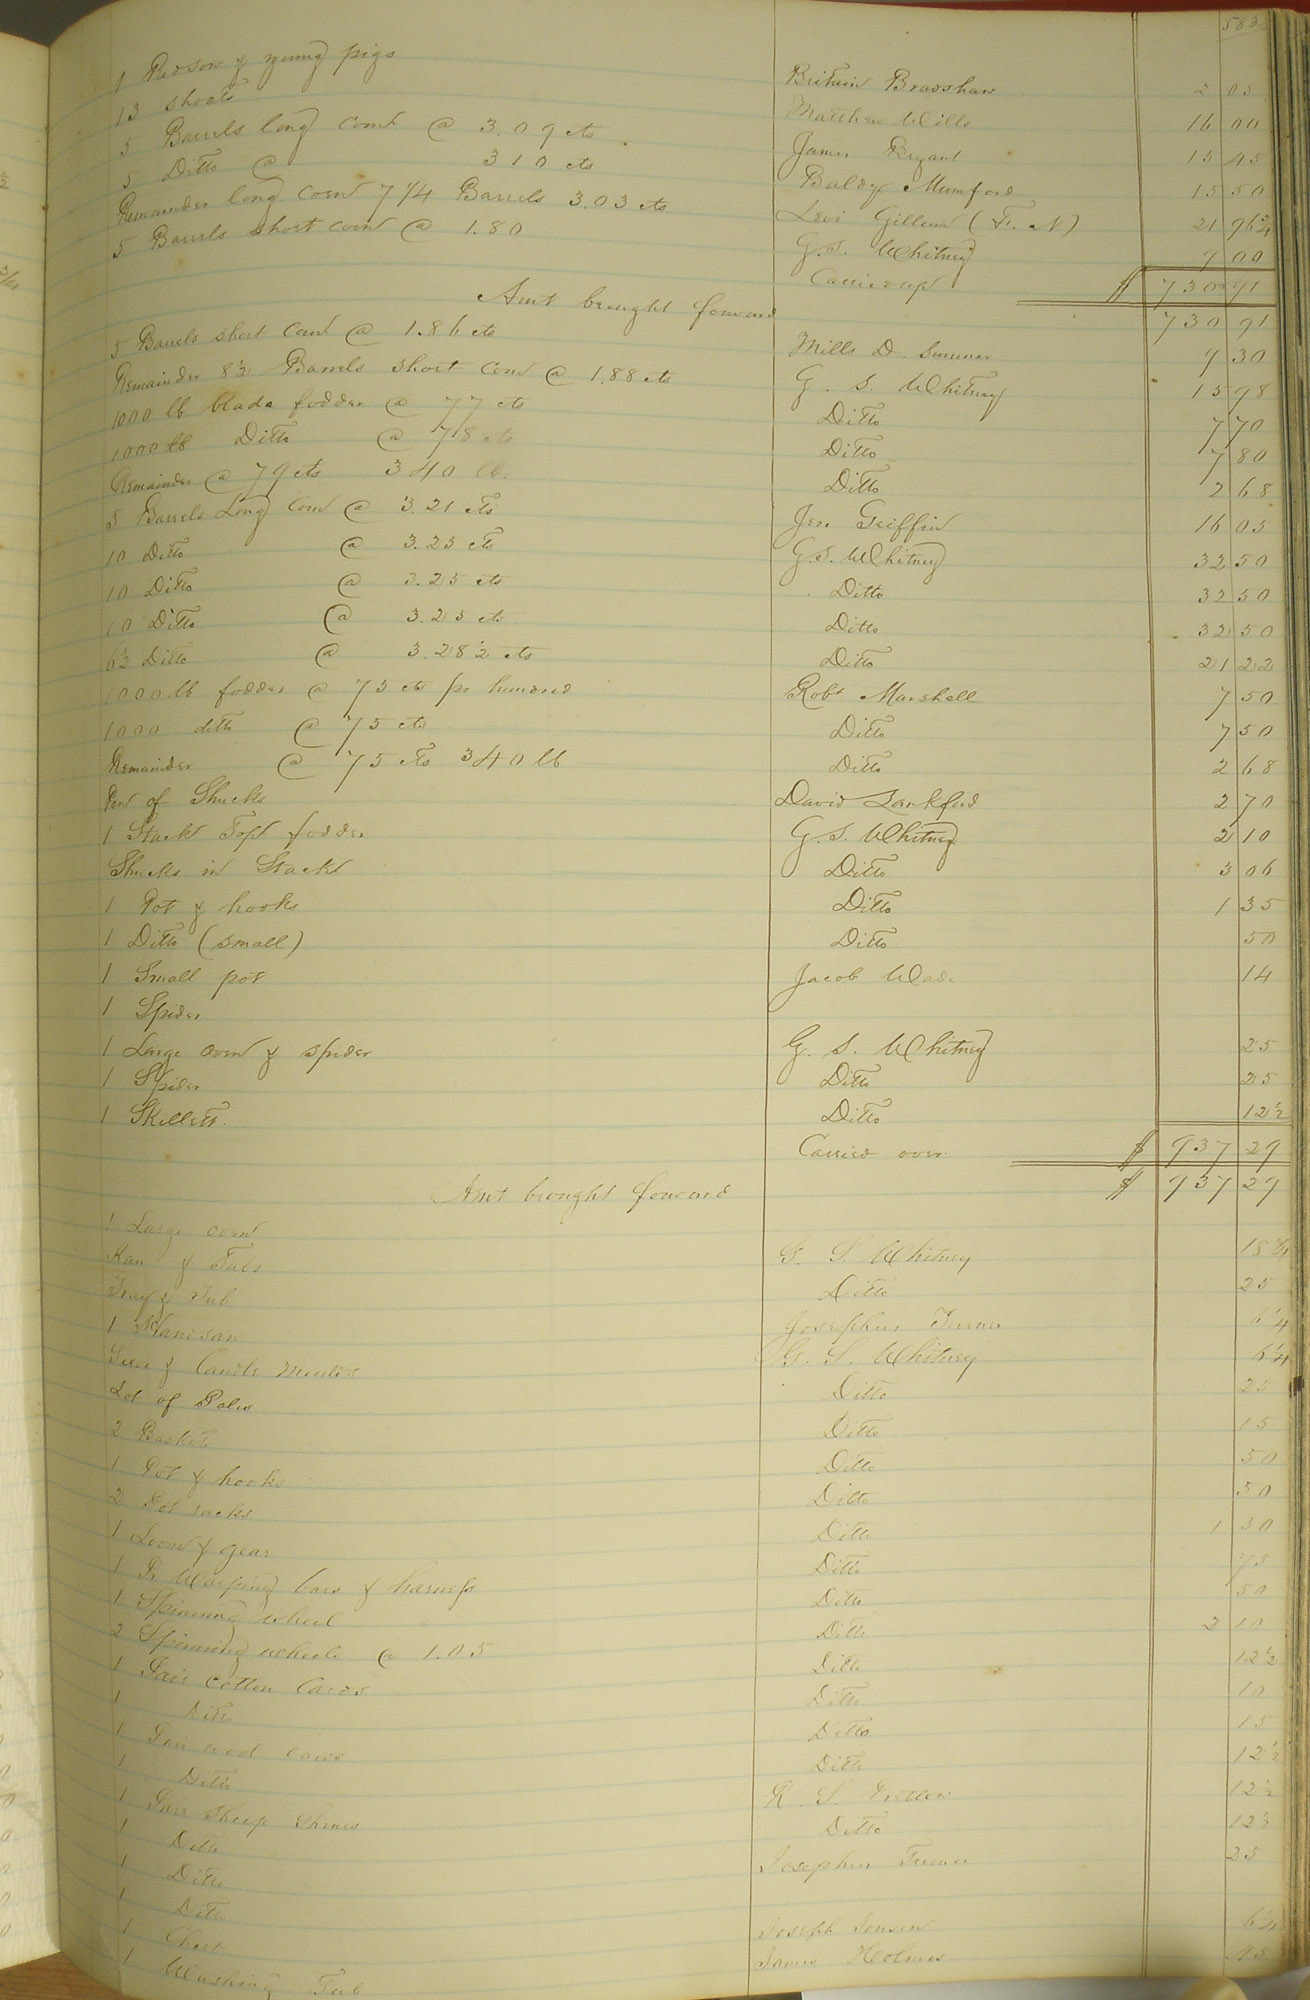 583
1 Red sow & young pigs Britain Bradshaw 2 05
13 shoats Matthew Wills 16 00
5 Barrels long corn @ 3.09 cts James Bryant 15 45
5 Ditto @ 310 cts Baldy Mumford 15 50
Remainder long corn 7 1/4 Barrels 3.03 cts Levi Gillem (F. N) 21 96 3/4
5 Barrels short corn @ 1.80 G. S. Whitney 9 00
Carried up $ 730 91
Amt brought forward 730 91
5 Barrels short corn @ 1.86 cts Mills D. 9 30
Remainder 8 1/2 Barrels short corn @ 1.88 cts G. S. Whitney 15 98
1000 lb blade fodder @ 77 cts Ditto 7 70
1000 lb Ditto @ 78 cts Ditto 7 80
Remainder @ 79 cts 340 lb. Ditto 2 68
5 Barrels Long corn @ 3.21 cts Jno Griffin 16 05
10 Ditto @ 3.25 cts G. S. Whitney 32 50
10 Ditto @ 3.25 cts Ditto 32 50
10 Ditto @ 3.25 cts Ditto 32 50
6 1/2 Ditto @ 3.28 1/2 cts Ditto 21 22
1000 lb fodder @ 75 cts pr hundred Robt Marshall 7 50
1000 ditto @ 75 cts Ditto 7 50
Remainder @ 75 cts 340 lb Ditto 2 68
Pen of Shucks David Lankford 2 70
1 Stack Top fodder G. S. Whitney 2 10
Shucks in Stack Ditto 3 06
1 Pot & hooks Ditto 1 35
1 Ditto (small) Ditto 50
1 Small pot Jacob Wade 14
1 Spider
1 Large oven & spider G. S. Whitney 25
1 Spider Ditto 25
1 Skillett. Ditto 12 1/2
Carried over $ 937 29
Amt brought forward $ 937 29
1 Large oven
& Tubs G. S. Whitney 18 3/4
Tray & Tub Ditto 25
1 Handsaw Josephus Turner 6 1/4
& Candle Moulds G. S. Whitney 6 1/4
Lot of Ditto 25
2 Baskets Ditto 15
1 Pot & hooks Ditto 50
2 Pot racks Ditto 50
1 Loom & gear Ditto 1 30
1 Pr Warping bars & harness Ditto 75
1 Spinning wheel Ditto 50
2 Spinning wheels @ 1.05 Ditto 2 10
1 Pair Cotton Cards Ditto 12 1/2
1 Ditto Ditto 10
1 Pair wool cards Ditto 15
1 Ditto Ditto 12 1/2
1 Pair Sheep Shears R. S. 12 1/2
1 Ditto Ditto 12 1/2
1 Ditto Josephus Turner 25
1 Ditto
1 Chest Joseph 6 1/4
1 Washing Tub James Holmes